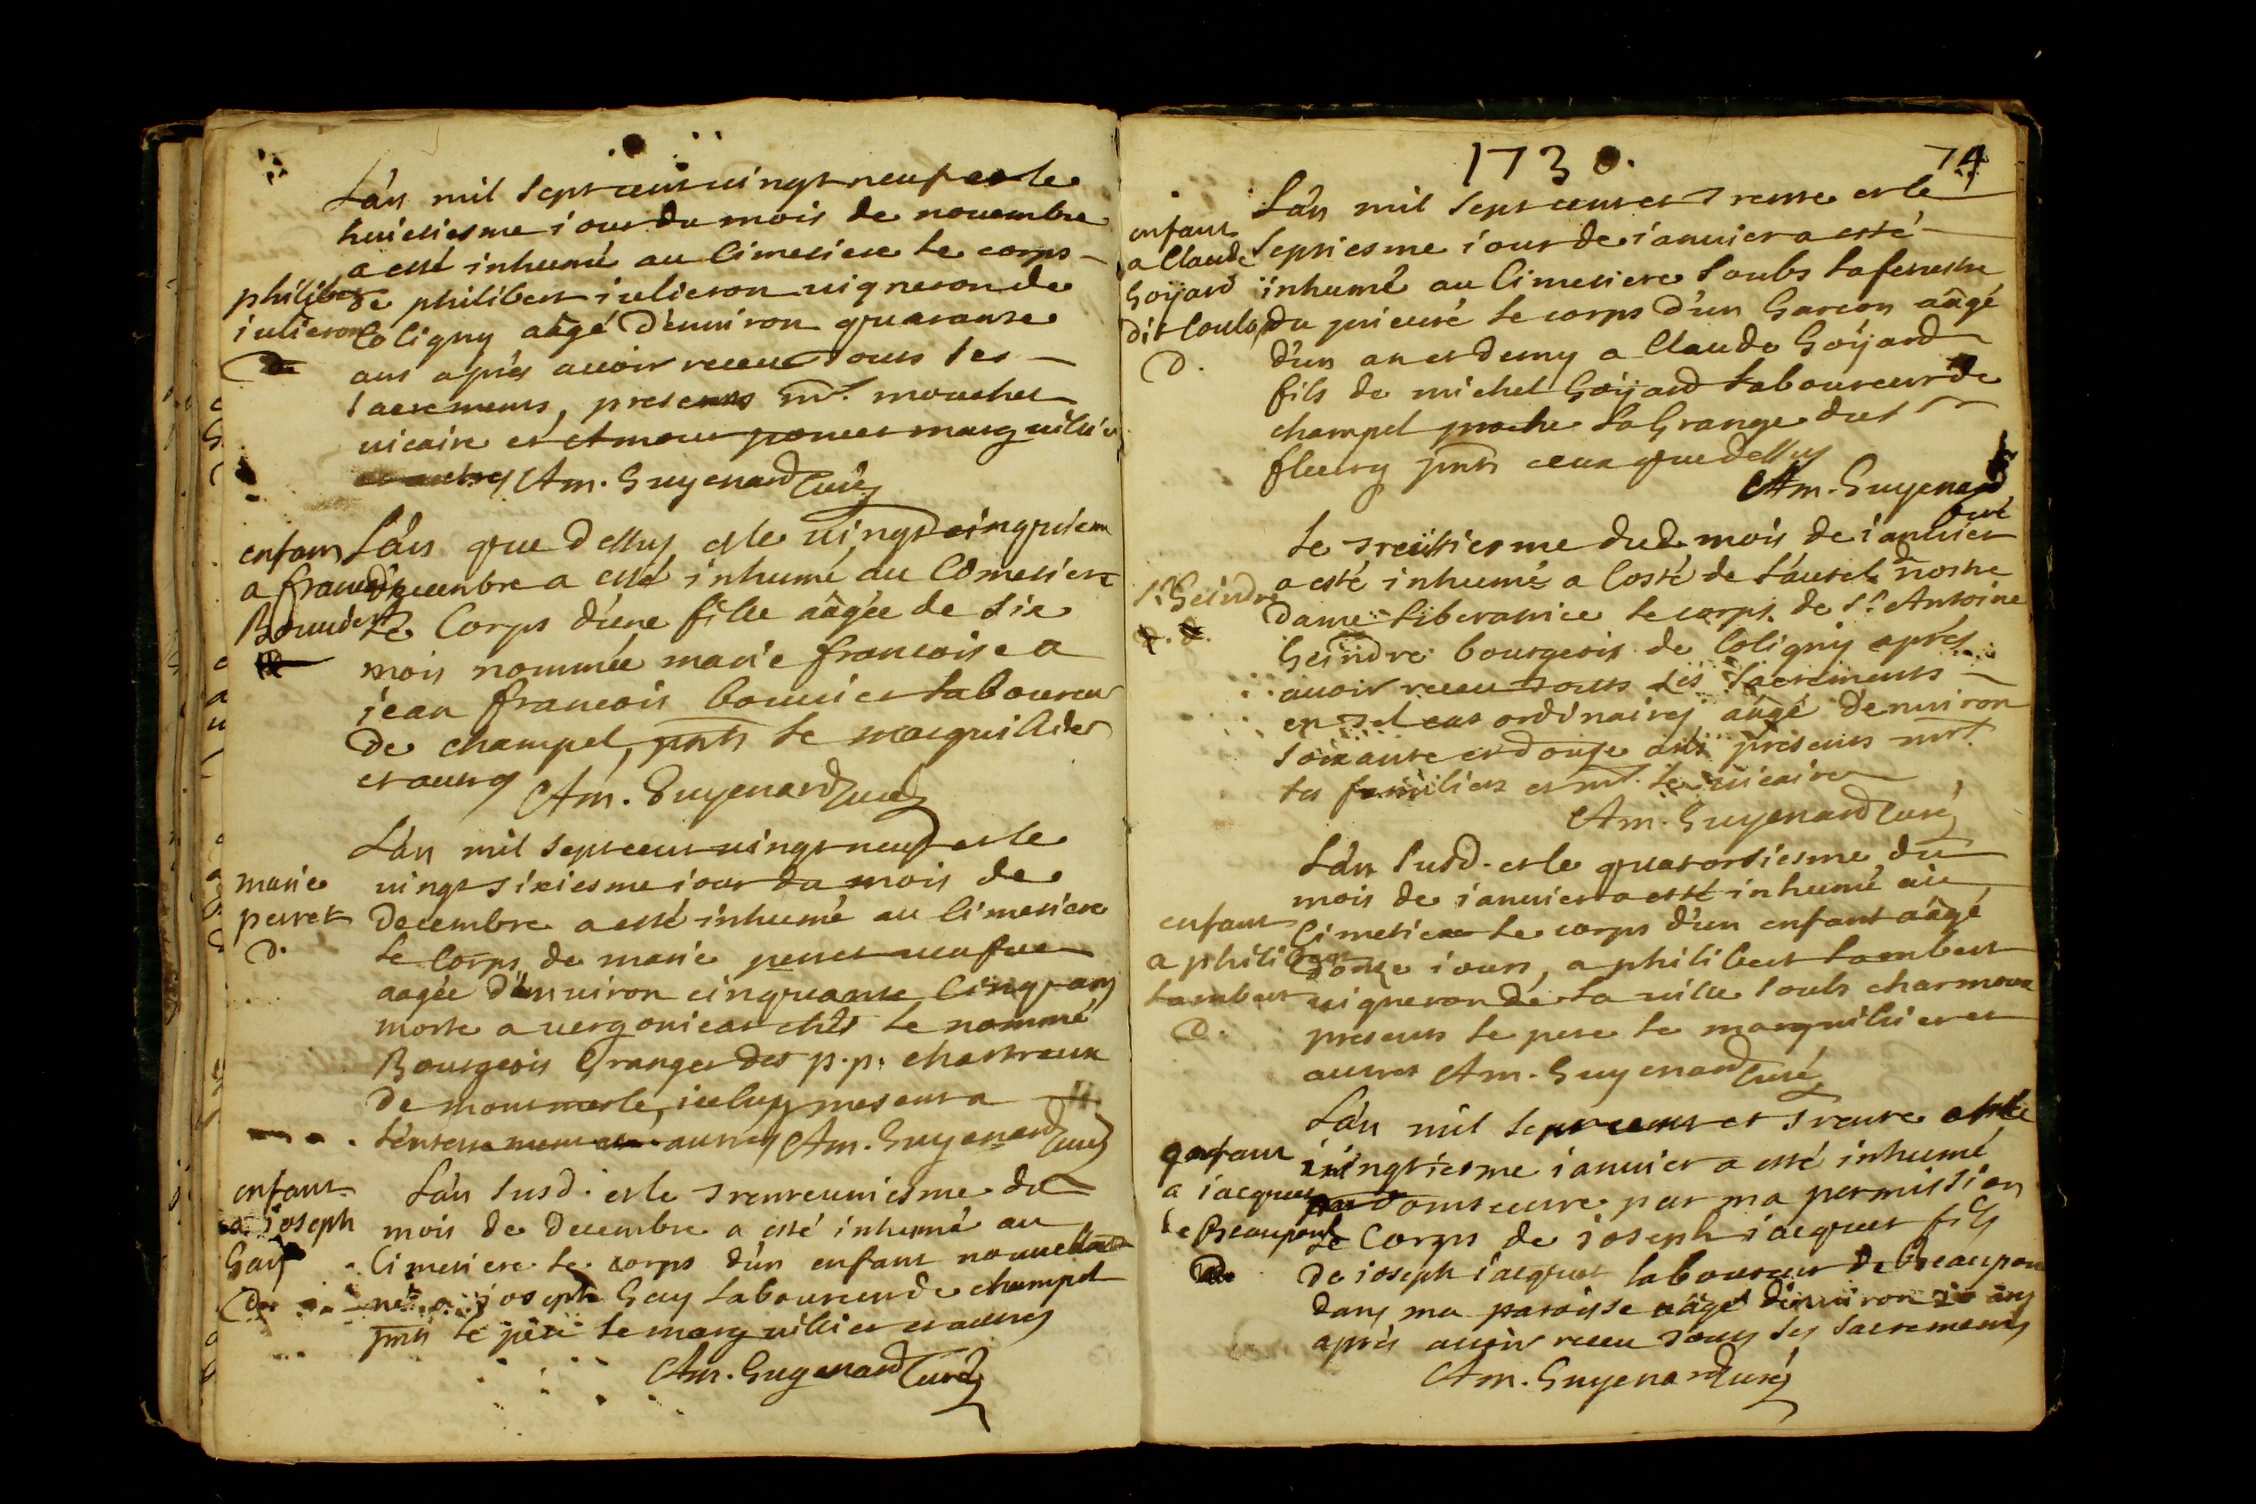 L'an mil sept cent vingt neuf et le
huictiesme iour du mois de nouembre
a esté inhumé au Cimetiere le corps
philibert de philibert iulieron uigneron de
iulieron Coligny aâgé d'enuiron quarante
D. ans aprés auoir receu tous les
sacrements, presents mr. mouchet
uicaire et Amour poncet marguillier
et autres Am. Guyenard Curé
enfant L'an que dessus et le uingt cinquiem
a francois decembre a esté inhumé au Cimetiere
le Corps d'une fille aâgée de six
mois nommée marie francoise a
iean francois bouuier laboureur
de champel, pnts le marguillier
et autres Am. Guyenard Curé
L'an mil sept cent uingt neuf et le
marie uingt sixiesme iour du mois de
perret decembre a esté inhumé au Cimetiere
D. le Corps de marie perret ueufue
aagée d'enuiron cinquante Cinq ans
morte a uergoniear chés le nommé
Bourgeois Granger des p.p. chartreux
de montmerle, iceluy present a
l'enterrement et autres Am. Guyenard Curé
enfant L'an susd. et le trente uniesme du
a ioseph mois de decembre a esté inhumé au
Gay Cimetiere le corps d'un enfant nouuellement
D. né a ioseph Gay laboureur de champel
pnts le pere le marguillier et autres
Am. Guyenard Curé
1730. 74
L'an mil sept cent et trente et le
enfant
a Claude septiesme iour de ianuier a esté
Goÿard inhumé au Cimetiere soubs la fenestre
dit Coulo du prieuré le corps d'un Garcon aâgé
D. d'un an et demy a Claude Goÿard
fils de michel Goÿard laboureur de
champel proche la Grange du
fleury pnts ceux que dessus
Am. Guyenard
Curé
le treiziesme dud. mois de ianuier
a esté inhumé a Costé de l'autel de nostre
Sr. Geindre dame liberatrice le corps de Sr. Antoine
Geindre bourgeois de Coligny aprés
auoir receu tous les sacrements
en tel cas ordinaires aâgé d'enuiron
soixante et douze ans presents mrs.
les familiers et mr. le uicaire
Am. Guyenard Curé
L'an susd. et le quatorsiesme du
mois de ianuier a esté inhumé au
enfant Cimetiere le corps d'un enfant aâgé
a philibert douze iours, a philibert lambert
lambert uigneron de la uille soubs charmoux
D. presents le pere le marguillier et
autres Am. Guyenard Curé
L'an mil sept cent et trente et le
enfant uingtiesme ianuier a esté inhumé
a iacquet a domsure par ma permission
de Beaupont le Corps de ioseph iacquet fils
D. de ioseph iacquet laboureur de beaupont
dans ma paroisse aâgé d'enuiron 20 ans
aprés auoir receu tous les sacrements
Am. Guyenard Curé